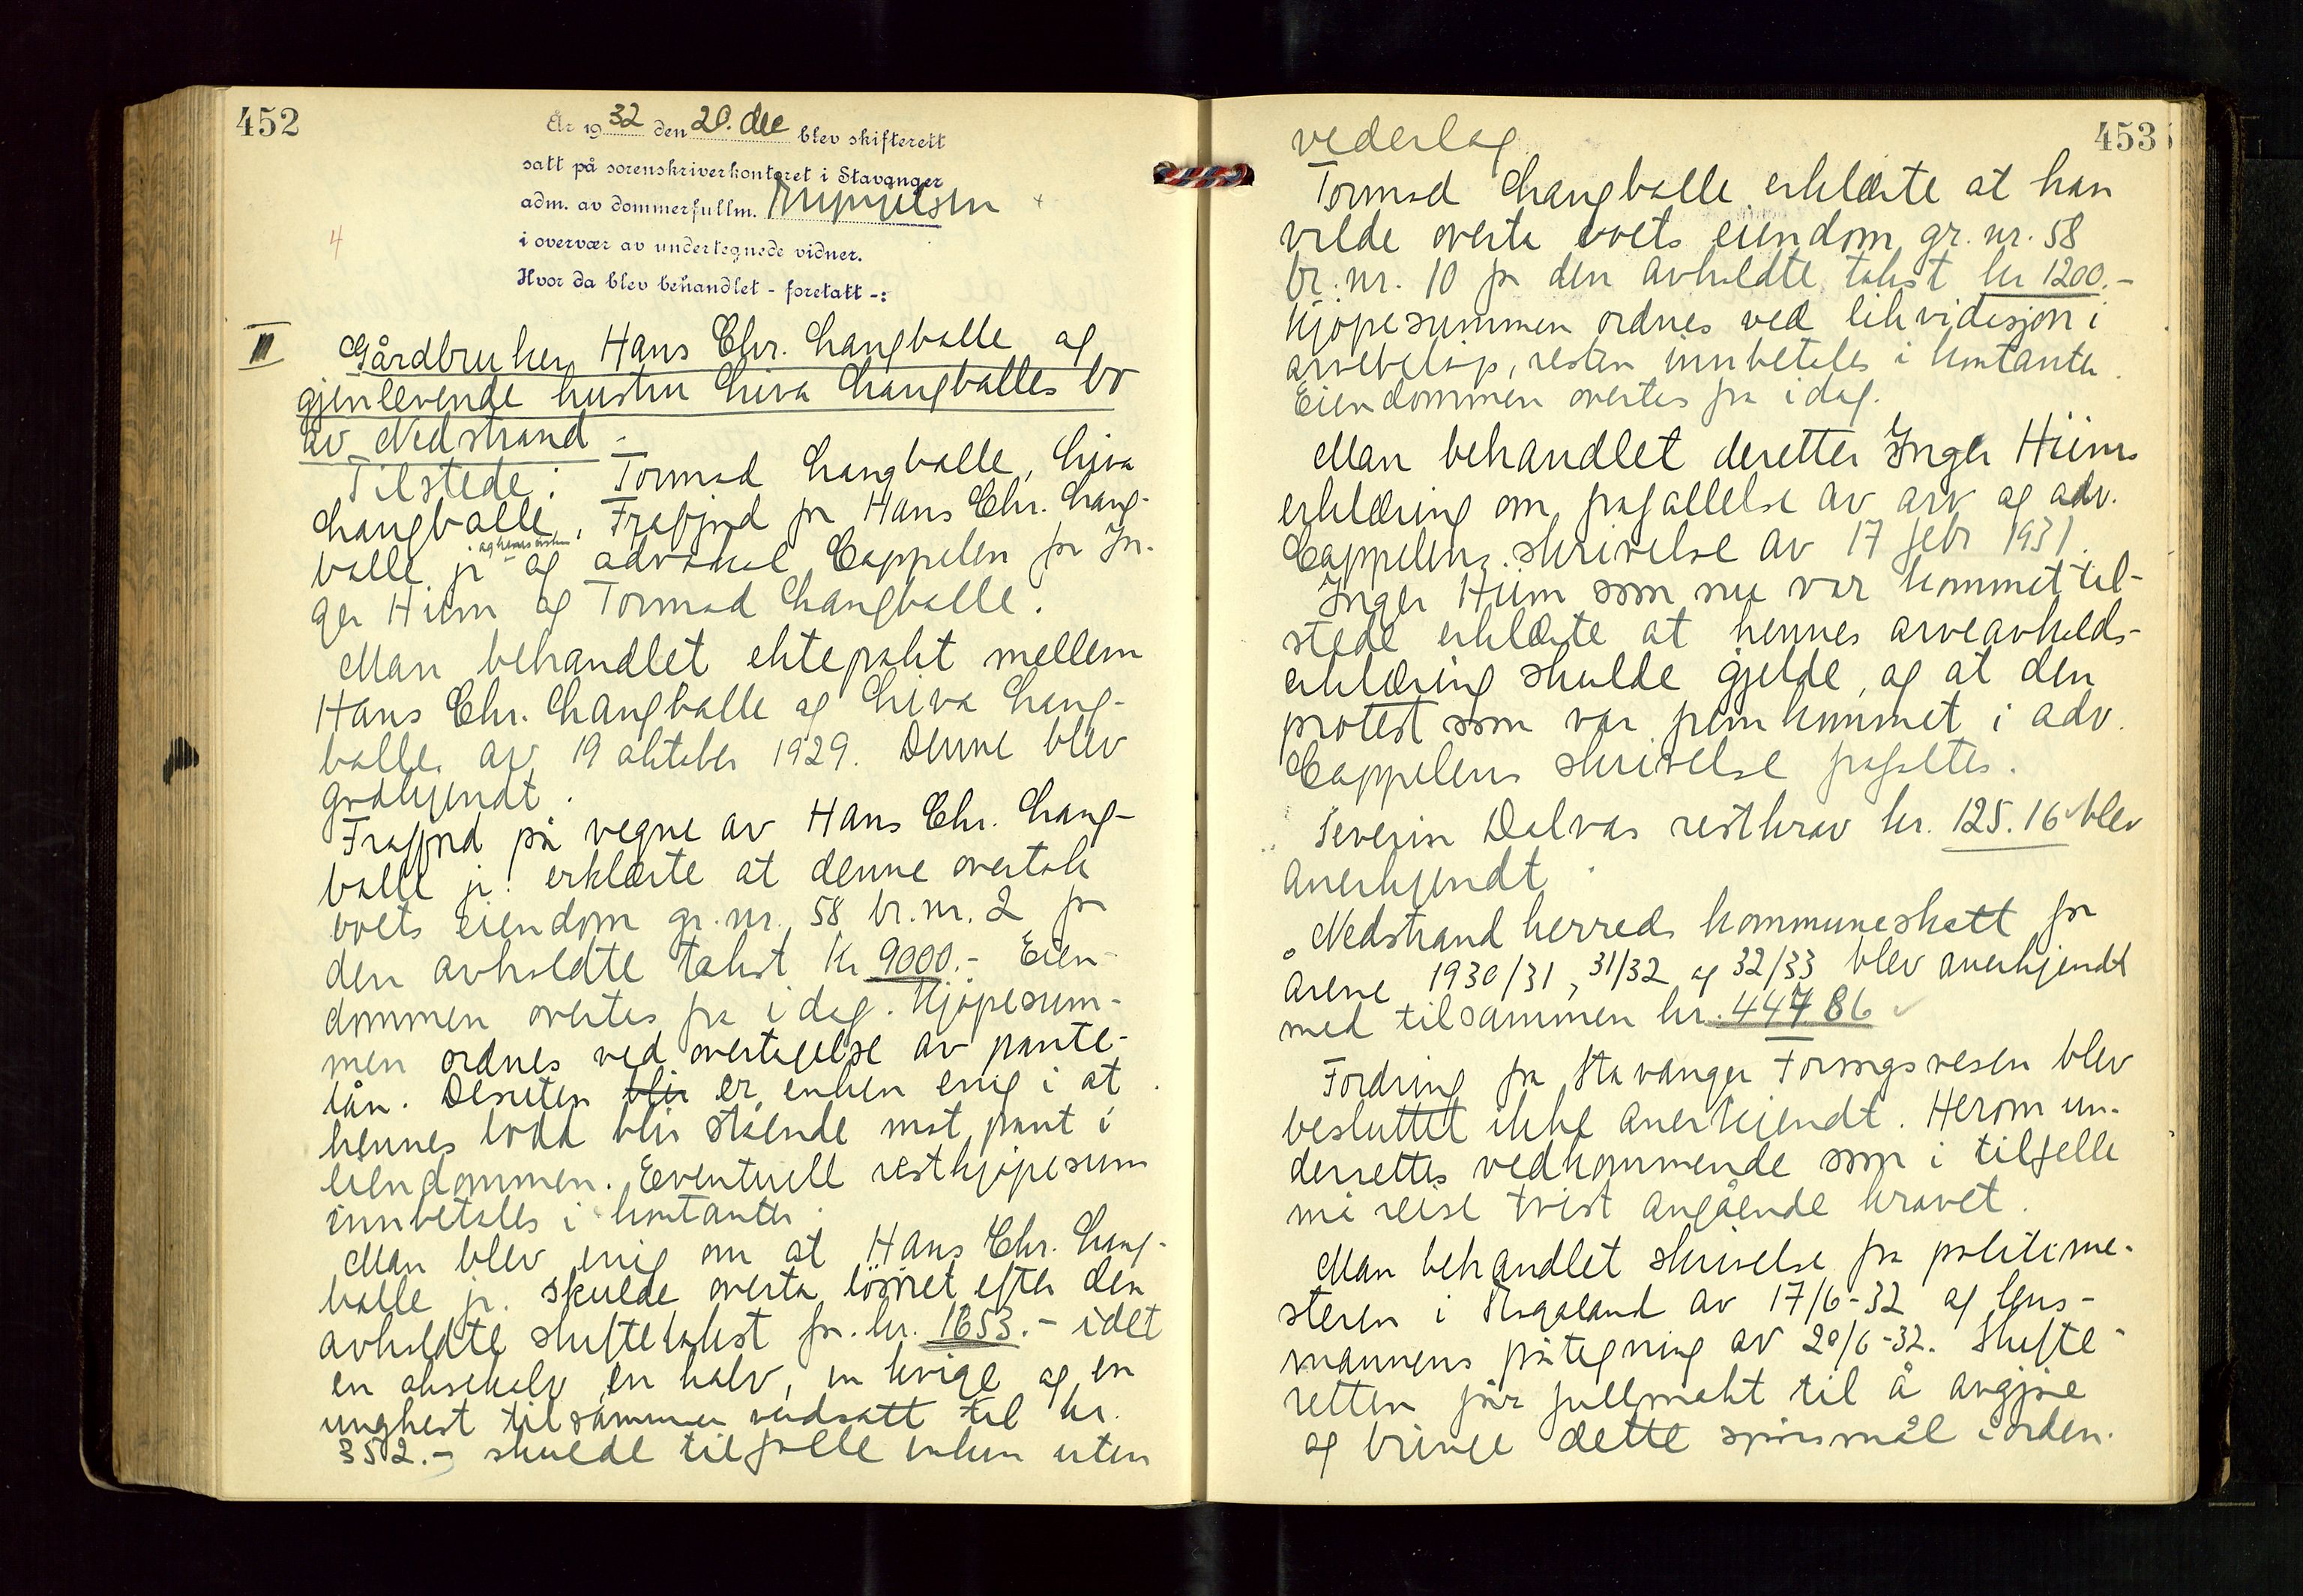 452
År 1932 den 20. dec blev skifterett
satt på sorenskriverkontoret i Stavanger
adm. av dommerfullm.
i overvær av undertegnede vidner.
Hvor da blev behandlet - foretatt -:
4
III Gårdbruker Hans Chr. Langballe og
gjenlevende hustru Liva Langballes bo
av Nedstrand.
Tilstede: Tormod Langballe, Liva
Langballe, Frafjord for Hans Chr. Lang-
balle jr og advokat Cappelen for In-
ger Hiim og Tormod Langballe.
Man behandlet ektepakt mellem
Hans Chr. Langballe og Liva Lang-
balle av 19 oktober 1929. Denne blev
godkjendt.
Frafjord på vegne av Hans Chr. Lang-
balle jr. erklærte at denne overtok
boets eiendom gr. nr. 58 br. nr. 2 for
den avholdte takst kr 9000.- Eien-
dommen overtas fra idag. Kjøpesum-
men ordnes ved overtagelse av pante-
lån. Desuten blir er enken enig i at
hennes lodd blir stående mot pant i
eiendommen. Eventuell restkjøpesum
innbetales i kontanter.
Man blev enig om at Hans Chr. Lang-
balle jr. skulde overta løsøret efter den
avholdte skiftetakst for kr. 1653.- idet
en oksekalv, en kalv, en kvige og en
unghest tilsammen verdsatt til kr.
352.- skulde tilfalle enken uten
453
vederlag.
Tormod Langballe erklærte at han
vilde overta boets eiendom gr. nr. 58
br. nr. 10 for den avholdte takst kr 1200.-
Kjøpesummen ordnes ved likvidasjon i
arvebeløp, resten innbetales i kontanter.
Eiendommen overtas fra idag.
Man behandlet deretter Inger Hiims
erklæring om frafallelse av arv og adv.
Cappelens skrivelse av 17 febr 1931.
Inger Hiim som nu var kommet til-
stede erklærte at hennes arveavkalds-
erklæring skulde gjelde, og at den
protest som var fremkommet i adv.
Cappelens skrivelse frafaltes.
Severin Dalvas restkrav kr. 125.16 blev
anerkjendt.
Nedstrand herreds kommuneskatt for
årene 1930/31, 31/32 og 32/33 blev anerkjendt
med tilsammen kr. 447 86
Fordring fra Stavanger Forsorgsvesen blev
besluttet ikke anerkjendt. Herom un-
derrettes vedkommende som i tilfelle
må reise tvist angående kravet.
Man behandlet skrivelse fra politime-
steren i Rogaland av 17/6-32 og lens-
mannens påtegning av 20/6-32. Skifte-
retten får fullmakt til å avgjøre
og bringe dette spørsmål i orden.